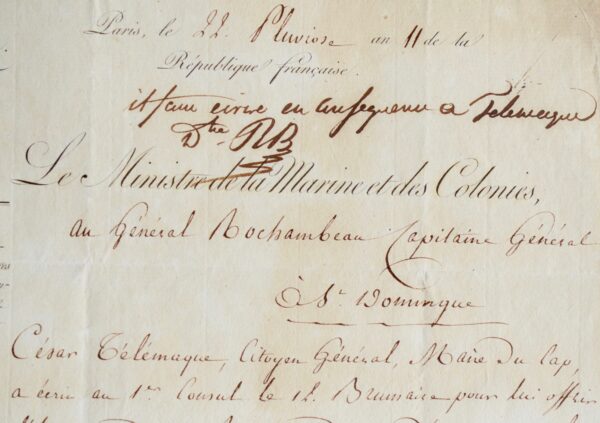 Paris, le 22 Pluviose an 11 de la
République française.
il faut écrire en conséquence a Telemaque
Dte RB
Le Ministre de la Marine et des Colonies,
au Général Rochambeau Capitaine Général
à St. Domingue
César Télémaque, Citoyen Général, Maire du Cap,
a écrit au 1er Consul le 12 Brumaire pour lui offrir